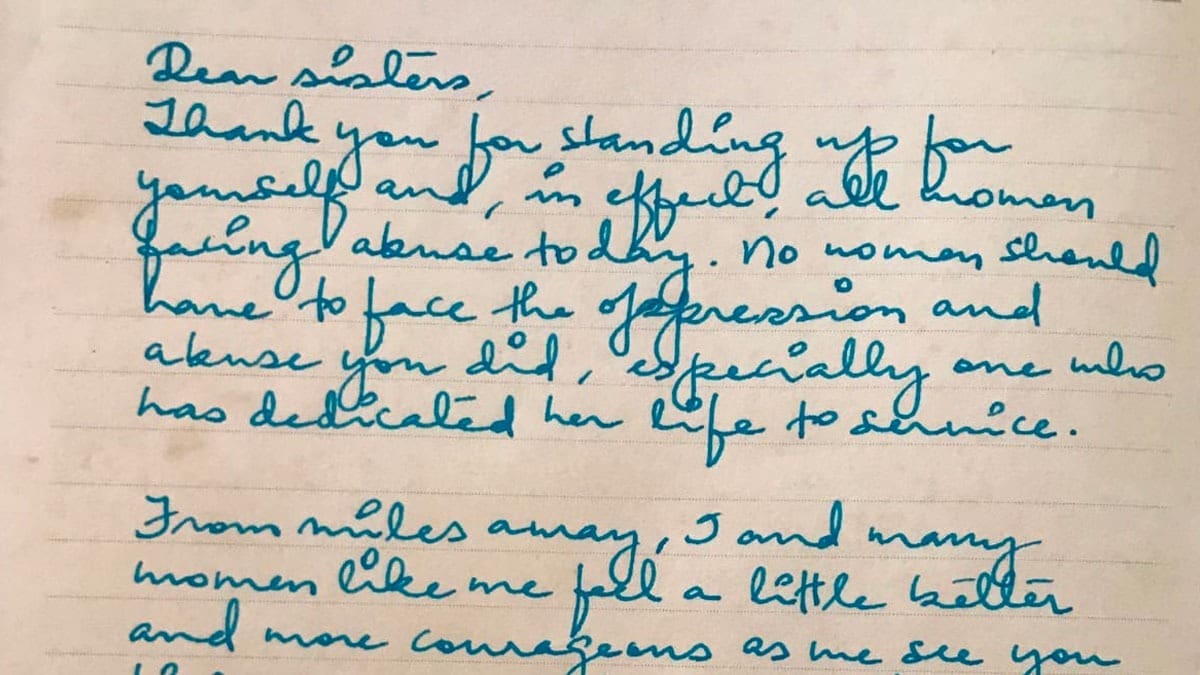 Dear sisters,
Thank you for standing up for
yourself and, in effect, all women
facing abuse today. No woman should
have to face the oppression and
abuse you did, especially one who
has dedicated her life to service.
From miles away, I and many
women like me feel a little better
and more courageous as we see you